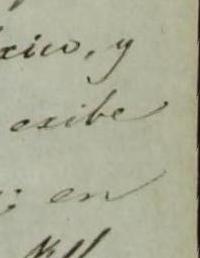 xico, y
exibe
; en